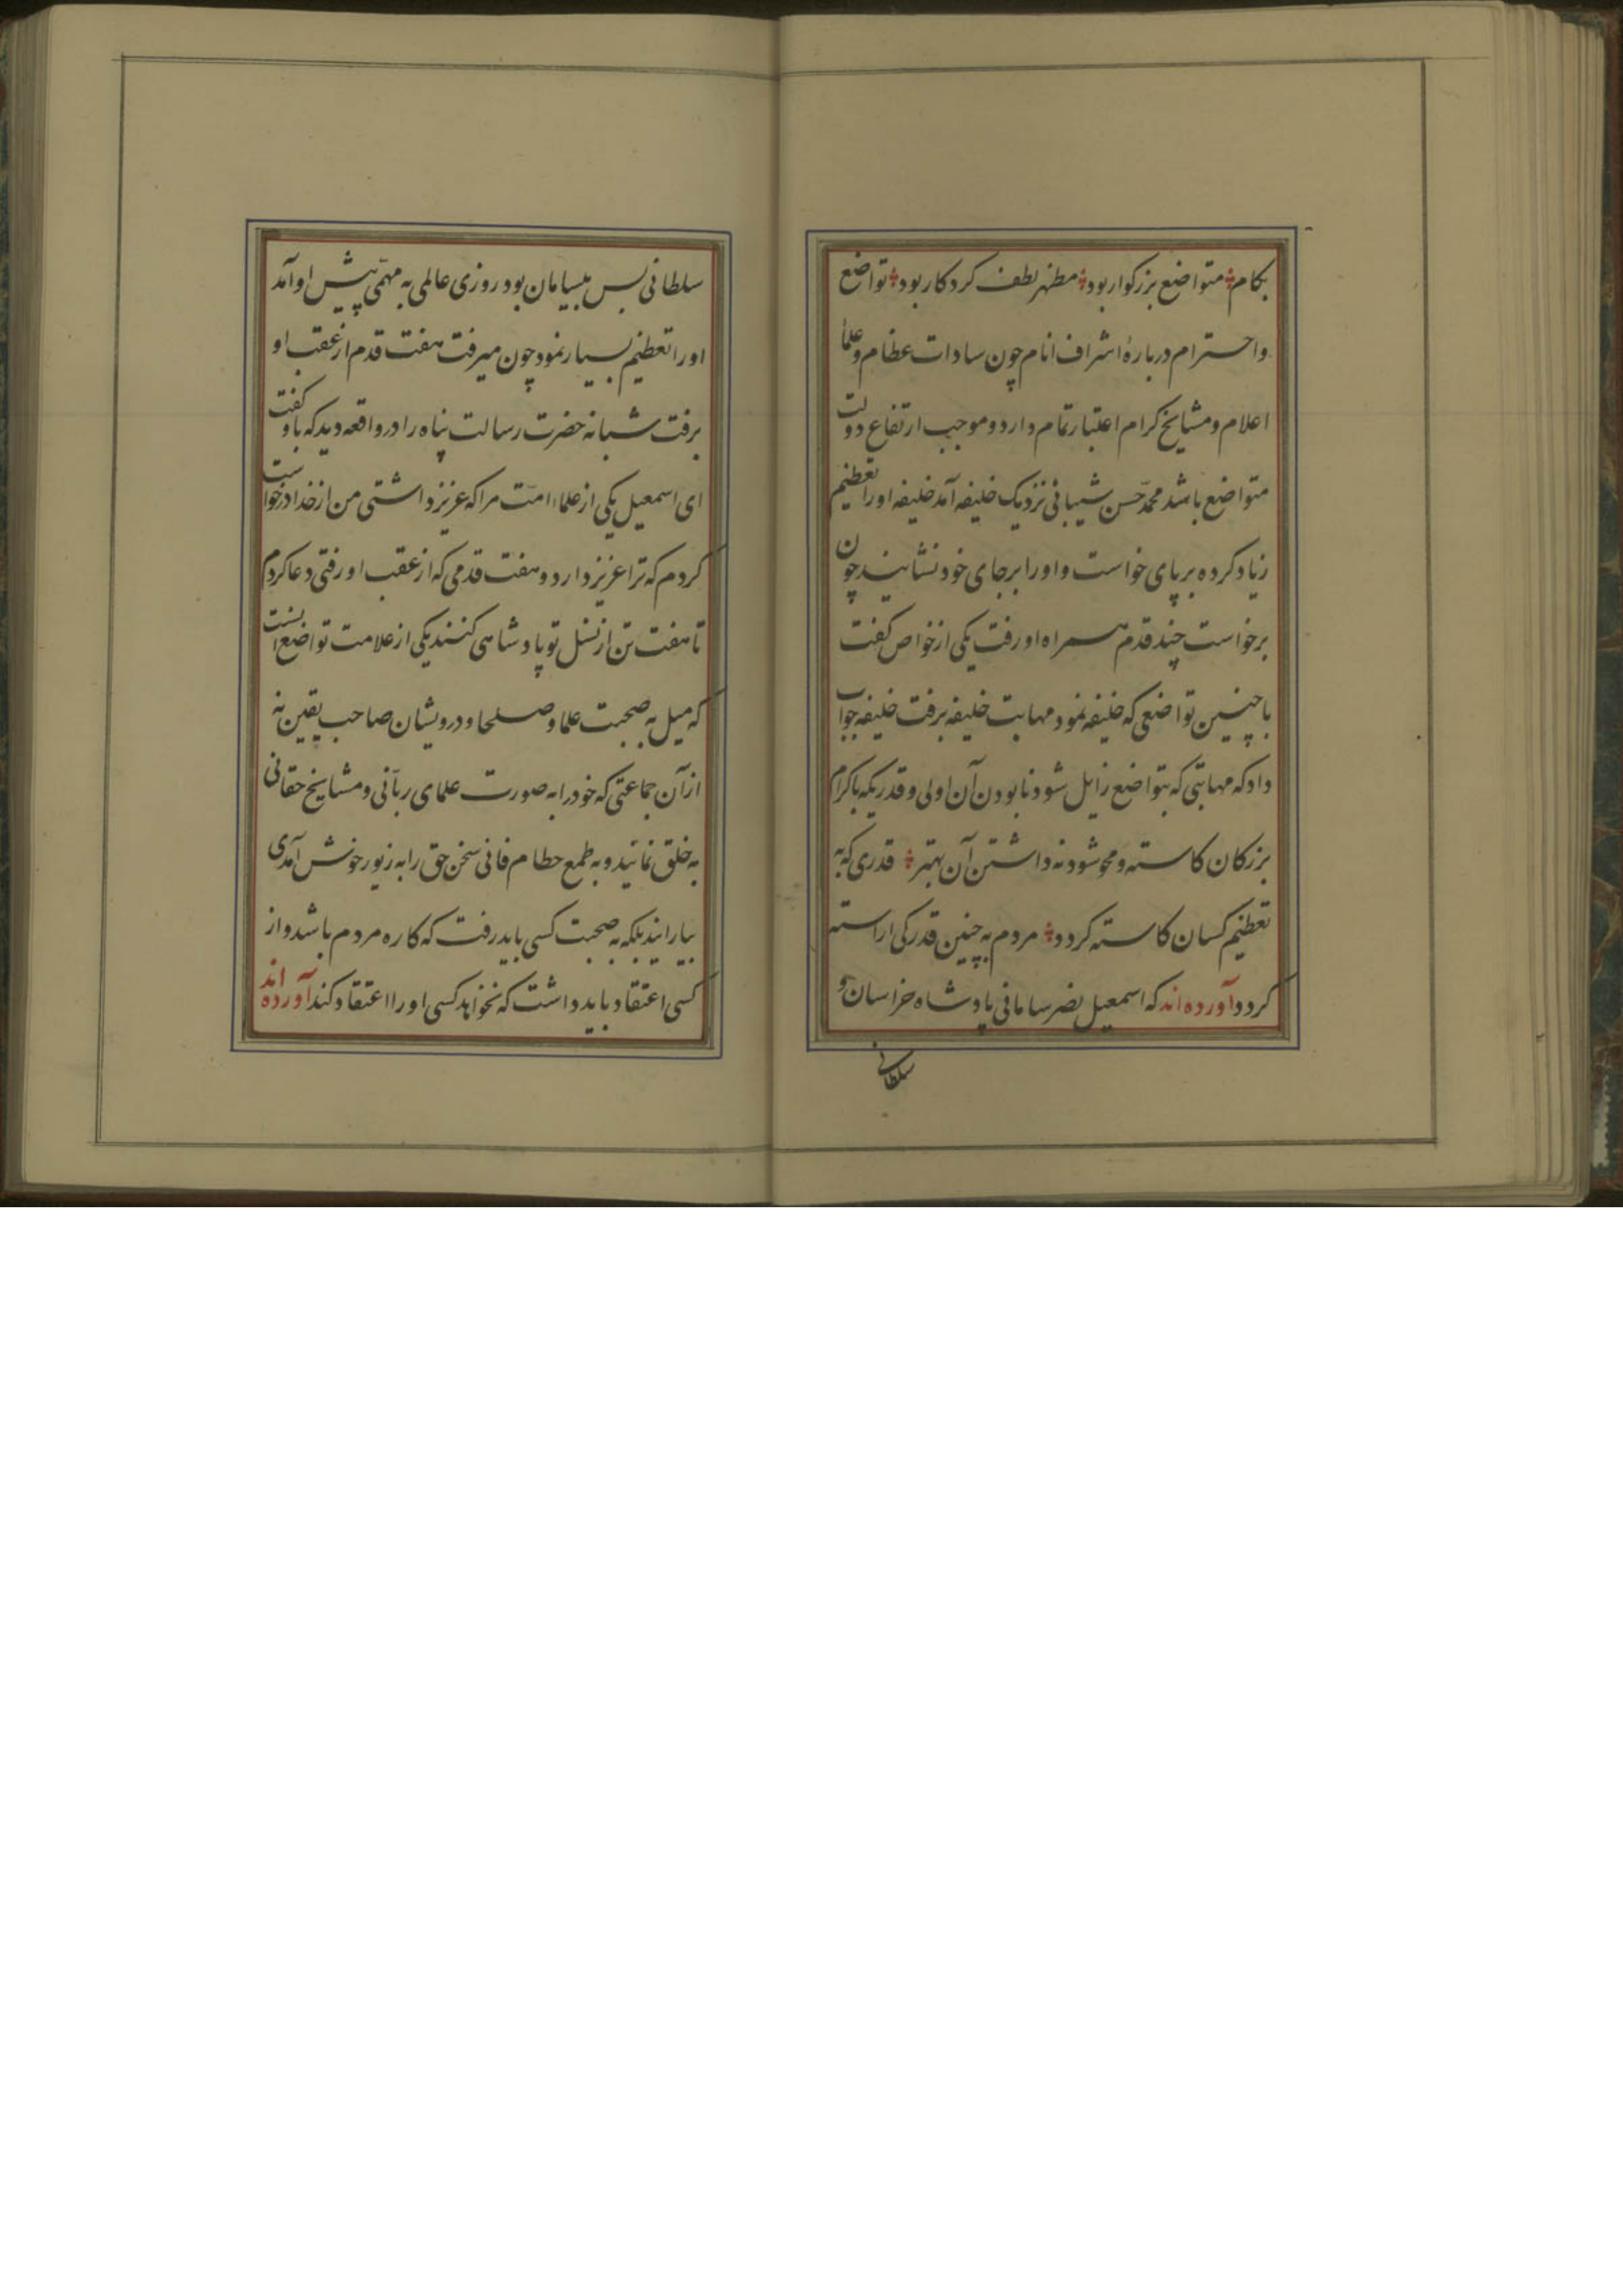 بکام متواضع بزرکوار بود مظهر لطف کردکار بود تواضع
واحترام دربارهٔ اشراف انام چون سادات عظام و علمأ
اعلام و مشایخ کرام اعتبار تمام دارد و موجب ارتفاع دولت
متواضع باشد محمّد حسن شیبانی نزدیک خلیفه آمد خلیفه او را تعظیم
زیاد کرده بر پای خواست و او را بر جای خود نشانید چون
برخواست چند قدم همراه او رفت یکی از خواص کفت
با چنین تواضعی که خلیفه نمود مهابت خلیفه برفت خلیفه جواب
داد که مهابتی که بتواضع زایل شود نابودن آن اولی و قدریکه باکرام
بزرکان کاسته و محو شود نه داشتن آن بهتر قدری که به
تعظیم کسان کاسته کردد مردم به چنین قدر کی اراسته
کردد و آورده اند که اسمعیل نصر سامانی پادشاه خراسان و
سلطانی
سلطانی بس بیسامان بود روزی عالمی به مهمّی پیش او آمد
او را تعظیم بسیار نمود چون میرفت هفت قدم از عقب او
برفت شبانه حضرت رسالت پناه را در واقعه دید که باو کفت
ای اسمعیل یکی از علماء امّت مرا که عزیز داشتی من از خدا درخواست
کردم که ترا عزیز دارد و هفت قدمی که از عقب او رفتی دعا کردم
تا هفت تن از نسل تو پادشاهی کنند یکی از علامت تواضع اینست
که میل به صحبت علما و صلحا و درویشان صاحب یقین نه
از آن جماعتی که خود را به صورت علمای ربّانی و مشایخ حقانی
به خلق نمایند و به طمع حطام فانی سخن حق را به زیور خوش آمدی
بیارایند بلکه به صحبت کسی باید رفت که کاره مردم باشد و از
کسی اعتقاد باید داشت که نخواهد کسی او را اعتقاد کند آورده اند